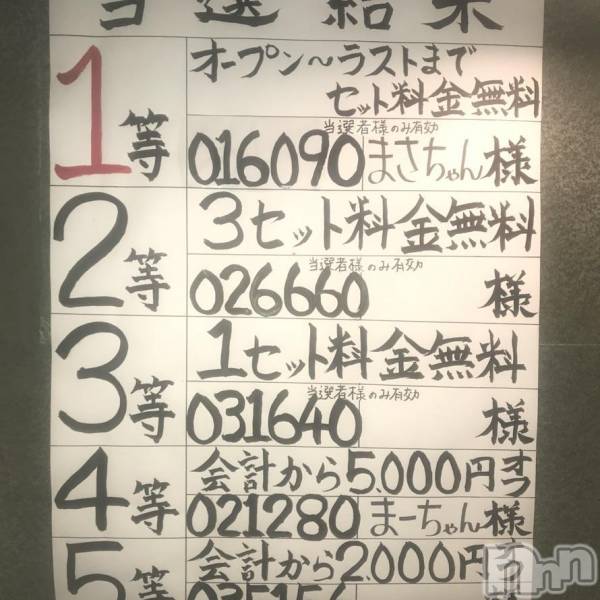 当選結果
1等
オープン～ラストまで
セット料金無料
当選者様のみ有効
016090 まさちゃん様
2等
3セット料金無料
当選者様のみ有効
026660 様
3等
1セット料金無料
当選者様のみ有効
031640 様
4等
会計から5,000円オフ
021280 まーちゃん様
5等
会計から2,000円